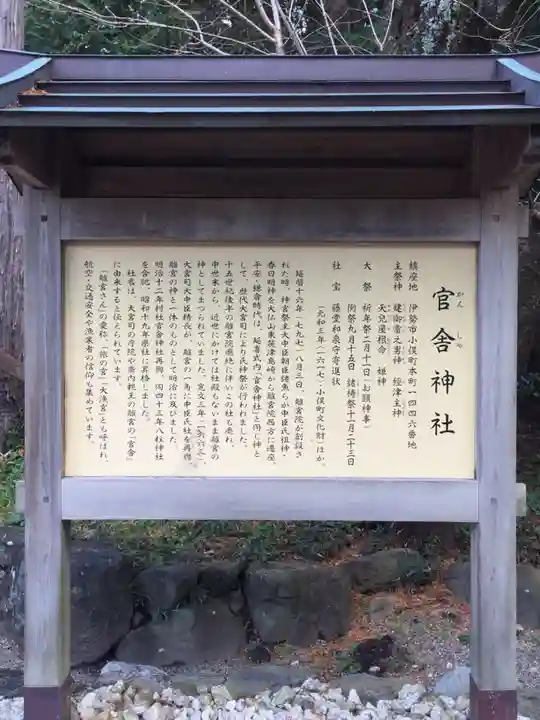 官舎神社
かん しゃ
鎮座地 伊勢市小俣町本町一四四六番地
主祭神 建御雷之男神 經津主神
天児屋根命 姫神
大祭 祈年祭二月十一日(お頭神事)
例祭九月十五日 諸穂祭十一月二十三日
社宝 藤堂和泉守寄進状
(元和三年(一六一七)・小俣町文化財)ほか。
延暦十六年(七九七)八月三日、離宮院が創設さ
れた時、神宮祭主大中臣朝臣諸魚らが中臣氏祖神・
春日明神を大仏山東麓津島崎から離宮院西方に遷座、
平安・鎌倉時代は、延喜式内「官舎神社」と同じ神と
して、世代大宮司により氏神祭が行われました。
十五世紀後半の離宮院廃絶に伴いこの社も廃れ、
中世末から、近世にかけては社殿もないまま離宮の
神としてまつられていました。寛文三年(一六六三)、
大宮司大中臣精長が、離宮の一角に中臣氏社を再興、
離宮の神と一体のものとして明治に及びました。
明治十二年村社官舎神社再興、同四十三年八柱神社
を合祀、昭和十九年県社に昇格しました。
社名は、大宮司の庁院や斎内親王の離宮の「官舎」
に由来すると伝えられています。
「離宮さん」の愛称、「旅の宮」「大漁宮」とも呼ばれ、
航空・交通安全や漁業者の信仰も集めています。